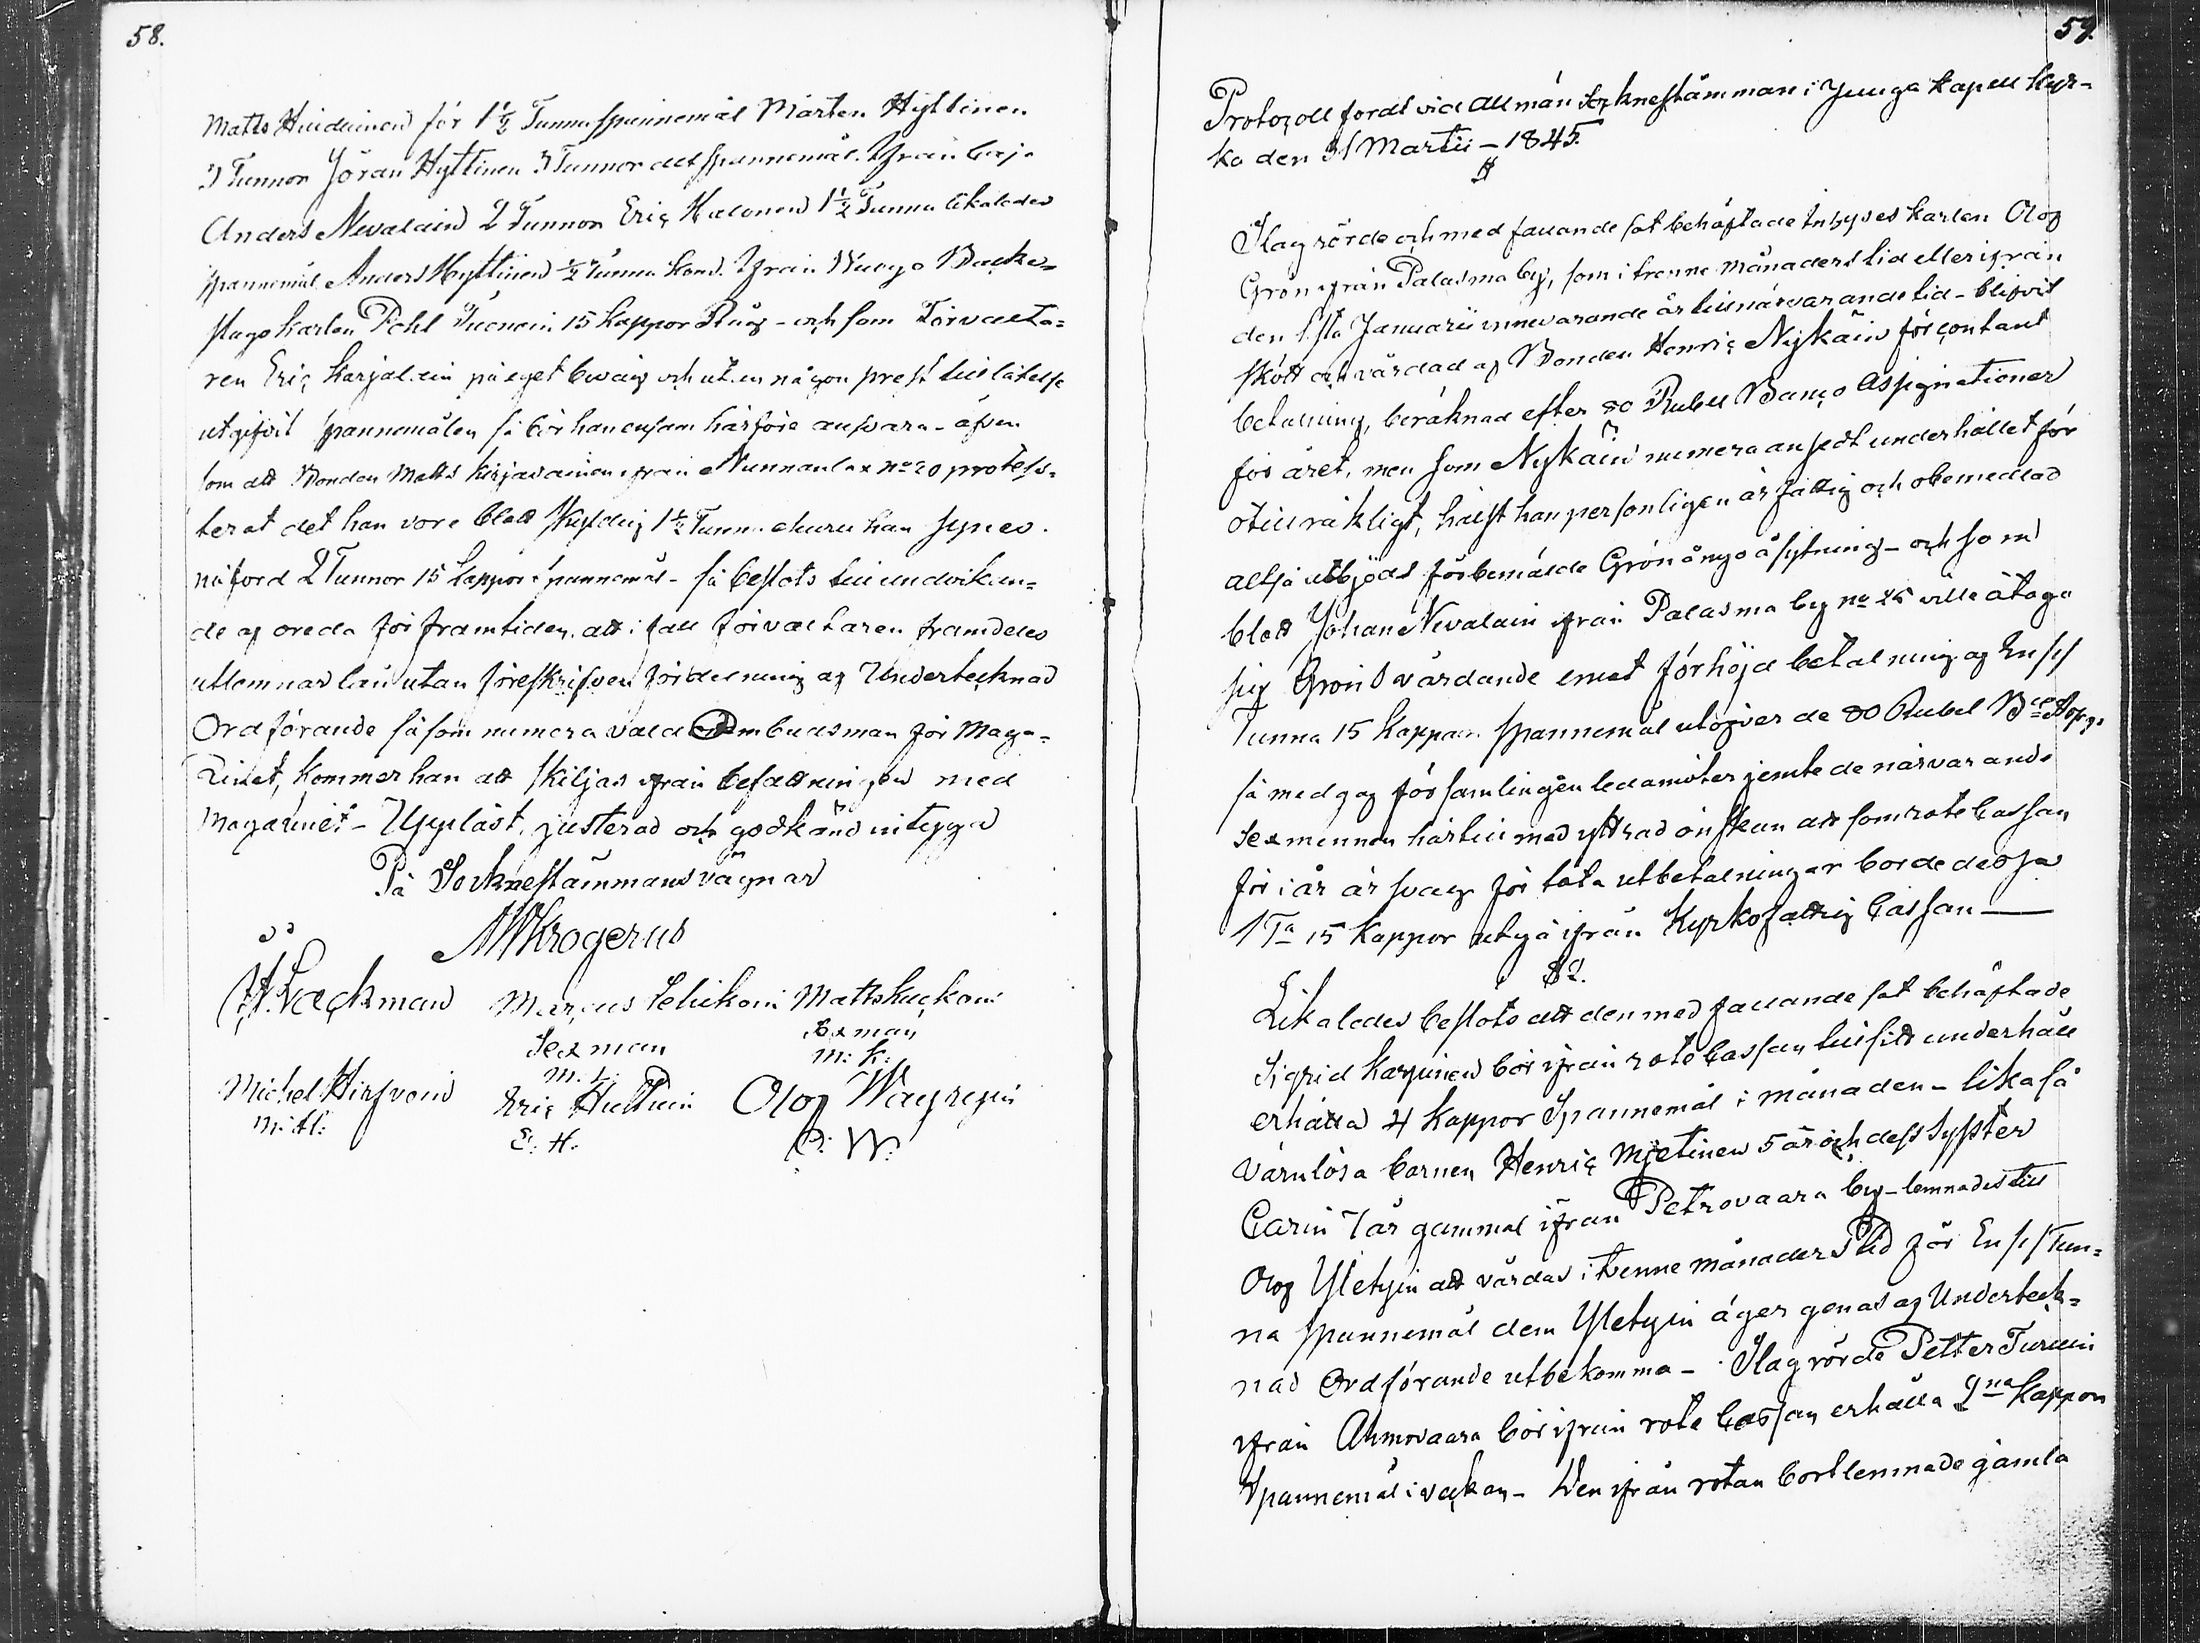 58.
Matts Huiduinen för 1 1/2 Tunna spannemål Mårten Hyttinen
3 Tunnor Jöran Hyttinen 3 Tunnor allt spannemål. Ifrån
Anders Nevalain 2 Tunnor Eric Halonen 1 1/2 Tunna likaledes
spannemål Anders Hyttinen 1/2 Tunna Korn. Ifrån Backe-
stugo karlen Pehl 15 kappor Råg - och som Förvalta-
ren Eric Karjalain på eget bevåg och utan någon prest tillåtelse
utgifvit spannemålen så bör han ensam härföre ansvara - äfven
som att Bonden Matts Kirjavainen ifrån Nunnanlax No 20 protess-
terat det han vore blott skyldig 1 1/2 Tunna ehuru han synes
påförd 2 Tunnor 15 kappor spannemål - så beslöts till undvikan-
de af oreda för framtiden, att i fall förvaltaren framdeles
utlemnar lån utan föreskrifven fördelning af Undertecknad
Ordförande såsom numera vald Ombudsman för Maga-
zinet, kommer han att skiljas ifrån befattningen med
Magazinet - Uppläst, justerad och godkänd intyga
På Socknestämmans vägnar
Krogerus
Backman Marcus Sehikoin Matts Kuckoin
Sexman Sexman
M. S. M: K:
Michel Hirfvoin Eric Hultuin Olof Wäyrynin
M: H: E: H: O: W:
59.
Protocoll fördt vid allmän Socknestämman i Juuga kapell kyr-
ka den 31 Martii - 1845.
§
Slagrörde och med fallande sot behäftade Inhyses karlen Olof
Grön ifrån Palasma by, som i trenne månaders tid eller ifrån
den 1sta Januarii innevarande år till närvarande tid - blifvit
skött och vårdad af Bonden Henric Nykäin för contant
betalning, beräknad efter 80 Rubel Banco Assignationer
för året, men som Nykäin numera ansedt underhållet för
otillräkligt, hälst han personligen är fattig och obemedlad
altså utbjöds förbemälde Grön ånyo å sytning - och som
blott Johan Nevalain ifrån Palasma by No 25 ville åtaga
sig Gröns vårdande emot förhöjd betalning af En /1/
Tunna 15 kappar spannemål utöfver de 80 Rubel Bco Assg.
så medgaf församlingen ledamöter jemte de närvarande
Sexmännen härtill med yttrad önskan att som rote Cassan
för i år är svag för täta utbetalningar borde dessa
1 Ta 15 kappor utgå ifrån Kyrkofattig Cassan -
§ 2.
Likaledes beslöts att den med fallande sot behäftade
Sigrid Karpinen bör ifrån rote Cassan till sitt underhåll
erhålla 4 kappor Spannemål i månaden - likaså
värnlösa barnen Henric Mjetinen 5 år och dess Syster
Carin 7 år gammal ifrån Petrovaara by - lemnades till
Olof Yletyin att vårdas i tvenne månaders tid för En /1/ Tun-
na spannemål dem Yletyin äger genast af Underteck-
nad Ordförande utbekomma - Slagrörde Petter Turuin
ifrån Ahmovaara bör ifrån rote Cassan erhålla 2ne kappor
Spannemål i veckan - Den ifrån rotan bortlemnade gamla